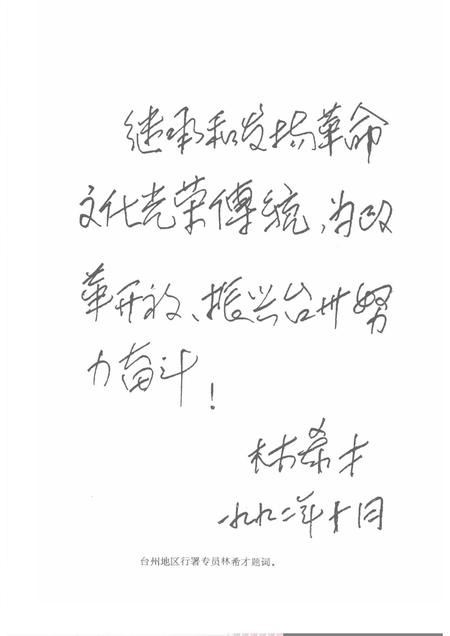 继承和发扬革命
文化光荣傳統、为改
革开放、振兴台州努
力奋斗！
林希才
一九九二年十月
台州地区行署专员林希才题词。